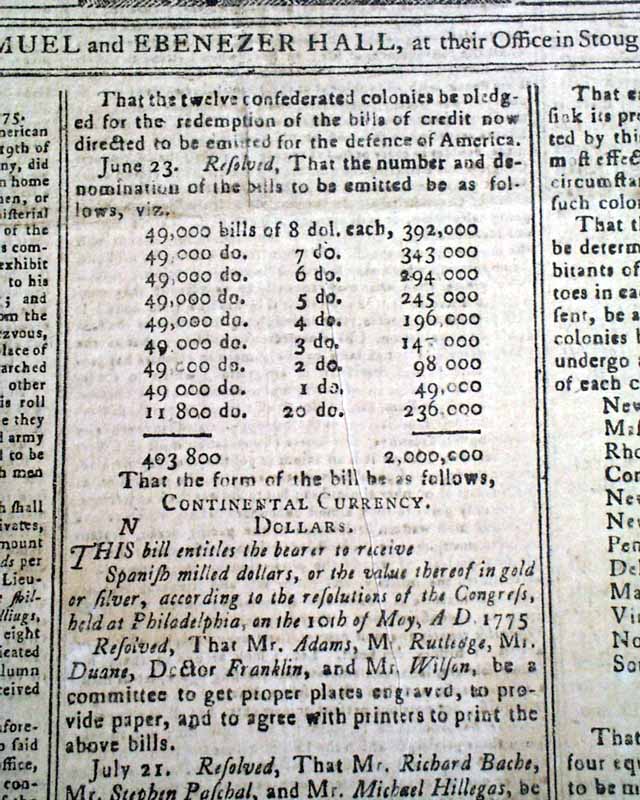 MUEL and EBENEZER HALL, at their Office in Stoug
75.
merican
19th of
ny, did
n home
men, or
nisterial
of the
s com-
exhibit
to his
; and
om the
ezvous,
place of
arched
other
is roll
e they
d army
d to be
h men
h shall
ivates,
mount
ds per
Lieu-
e shil-
llings,
eight
icated
olumn
ceived
afore-
o said
office,
con-
That the twelve confederated colonies be pledg-
ed for the redemption of the bills of credit now
directed to be emitted for the defence of America.
June 23. Resolved, That the number and de-
nomination of the bills to be emitted be as fol-
lows, viz.
49,000 bills of 8 dol. each, 392,000
49,000 do. 7 do. 343 000
49,000 do. 6 do. 294 000
49,000 do. 5 do. 245 000
49,000 do. 4 do. 196,000
49,000 do. 3 do. 147 000
49,000 do. 2 do. 98,000
49 000 do. 1 do. 49,000
11,800 do. 20 do. 236,000
403 800 2,000,000
That the form of the bill be as follows,
CONTINENTAL CURRENCY.
N DOLLARS.
THIS bill entitles the bearer to receive
Spaniſh milled dollars, or the value thereof in gold
or ſilver, according to the reſolutions of the Congreſs,
held at Philadelphia, on the 10th of May, A D. 1775
Reſolved, That Mr. Adams, Mr. Rutledge, Mr.
Duane, Doctor Franklin, and Mr. Wilſon, be a
committee to get proper plates engraved, to pro-
vide paper, and to agree with printers to print the
above bills.
July 21. Reſolved, That Mr. Richard Bache,
Mr. Stephen Paſchal, and Mr. Michael Hillegas, be
That ea
ſink its pro
ted by this
moſt effect
circumſtan
ſuch colon
That th
be determ
bitants of
toes in eac
ſent, be a
colonies b
undergo a
of each c
New
Maſ
Rho
Con
New
New
Pen
Del
Ma
Vir
No
Sou
That
four equ
to be m